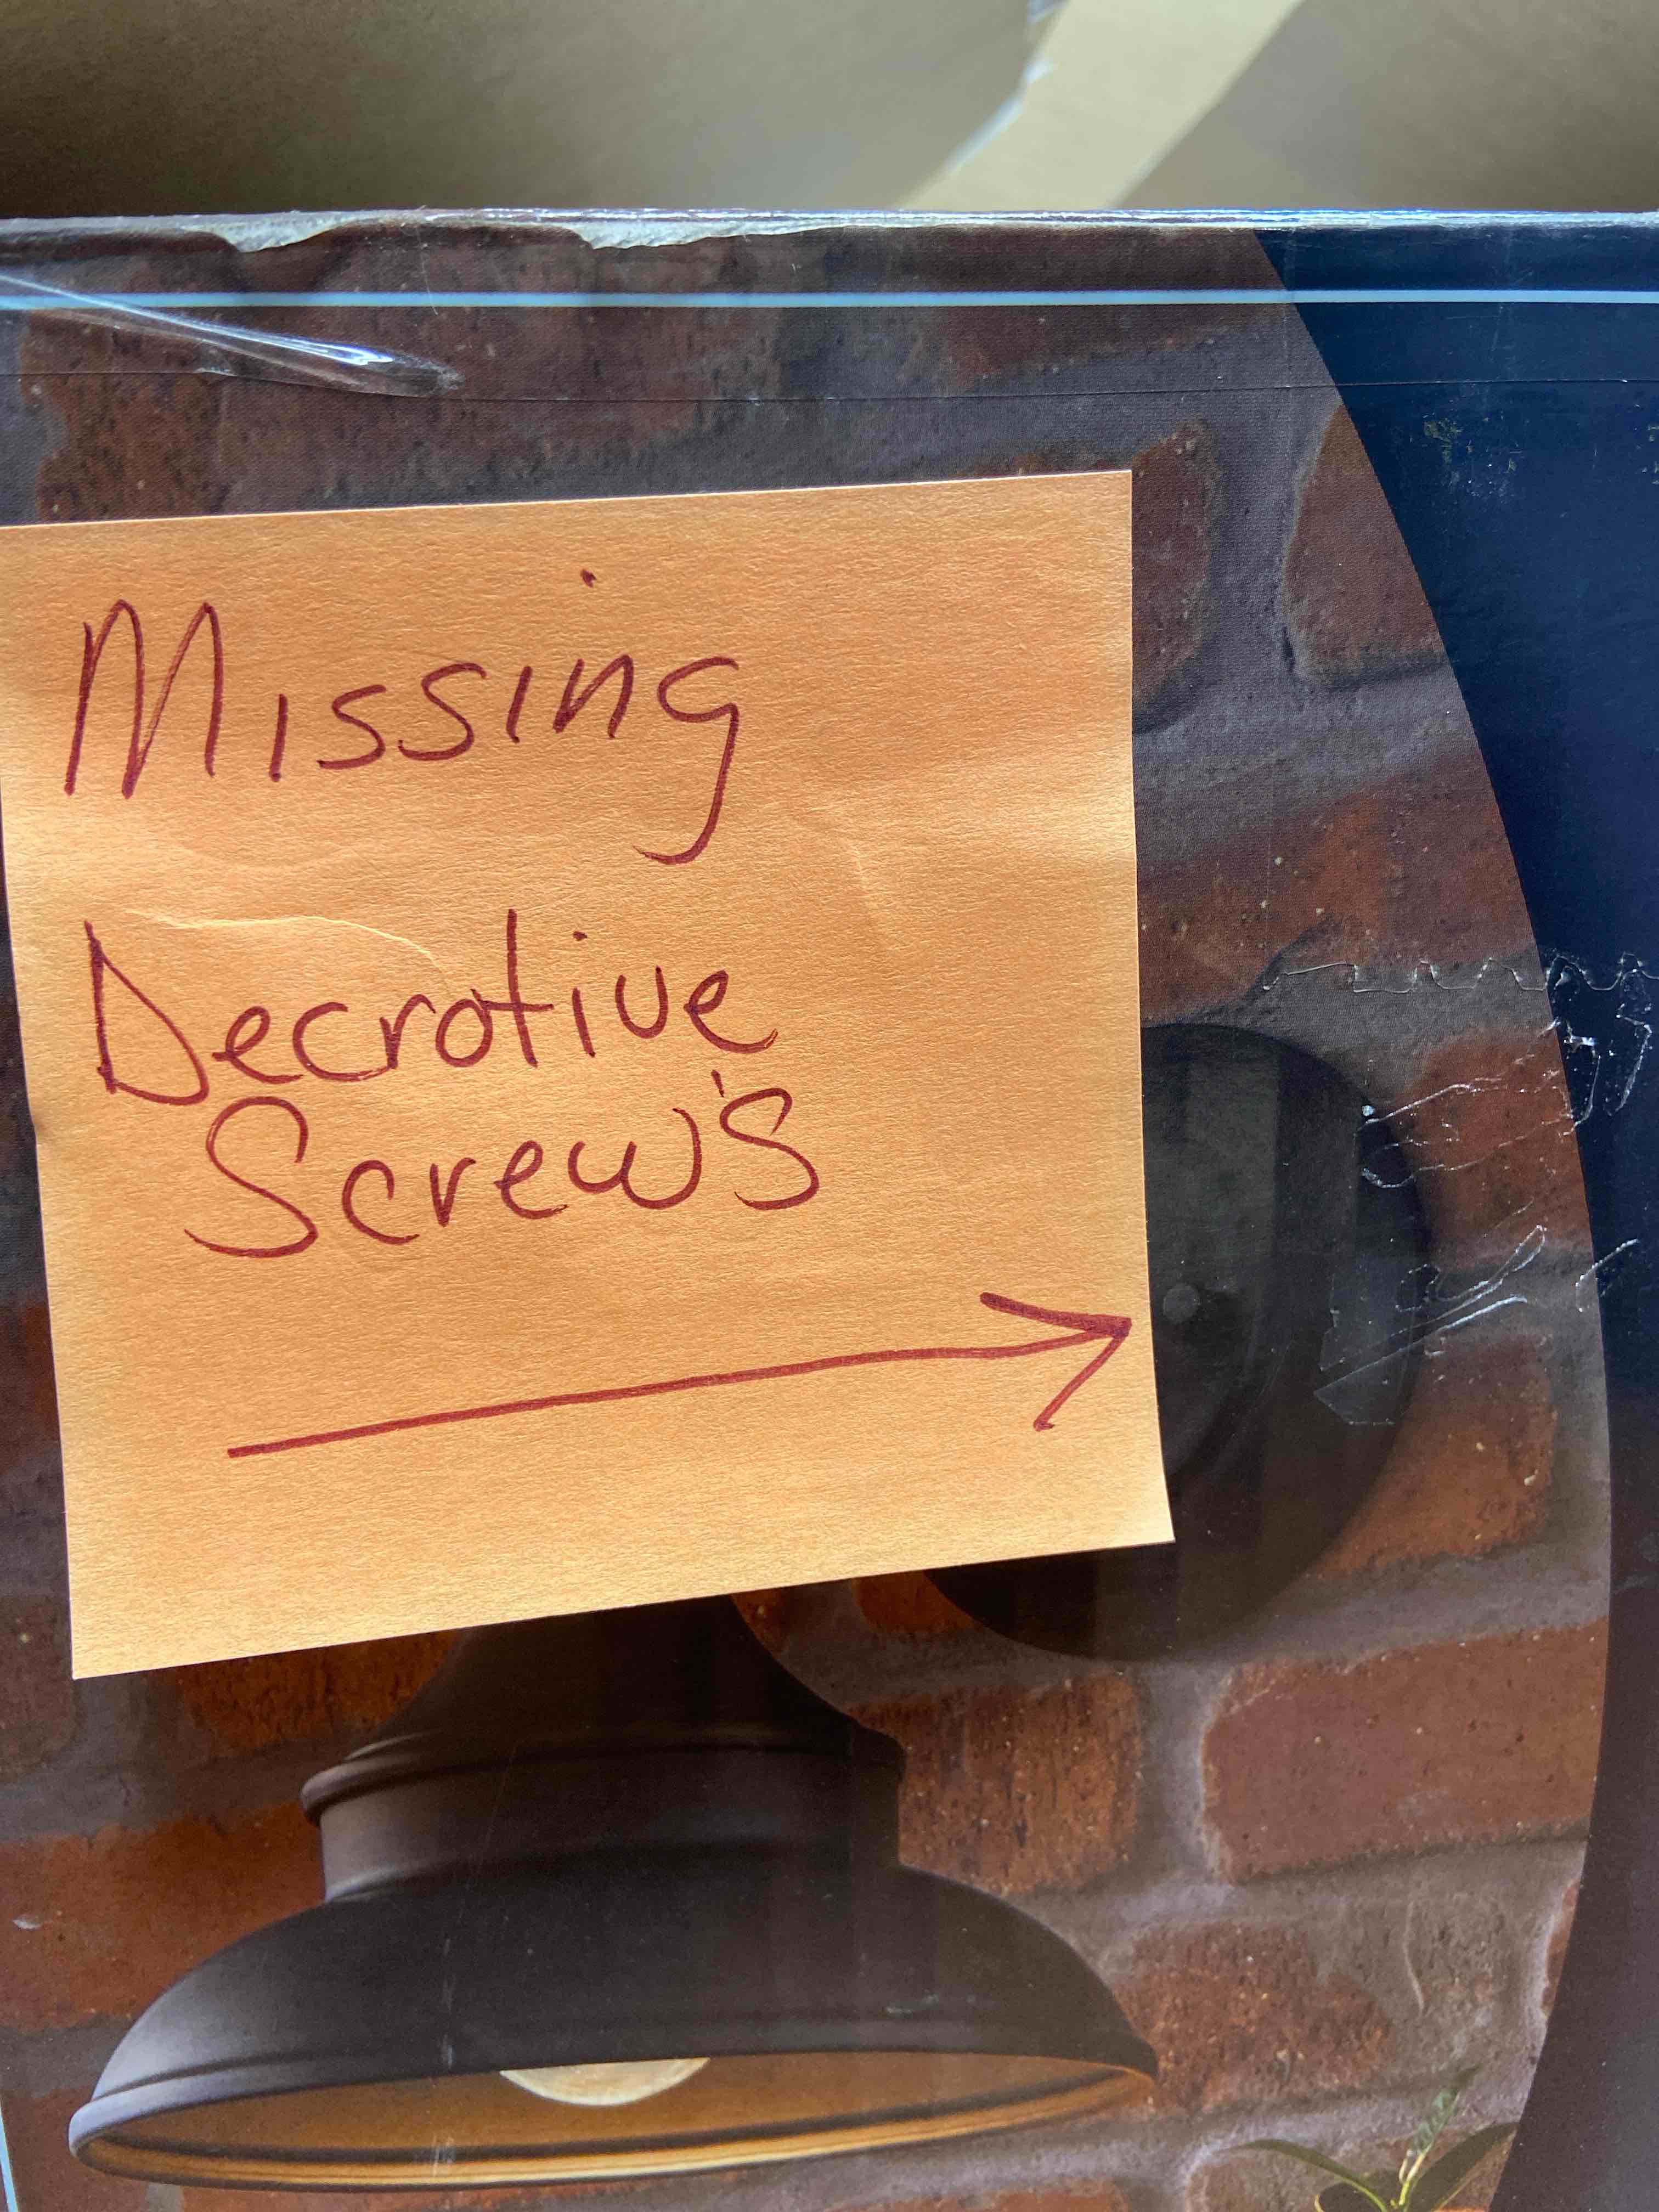 Missing
Decrotive
Screw's